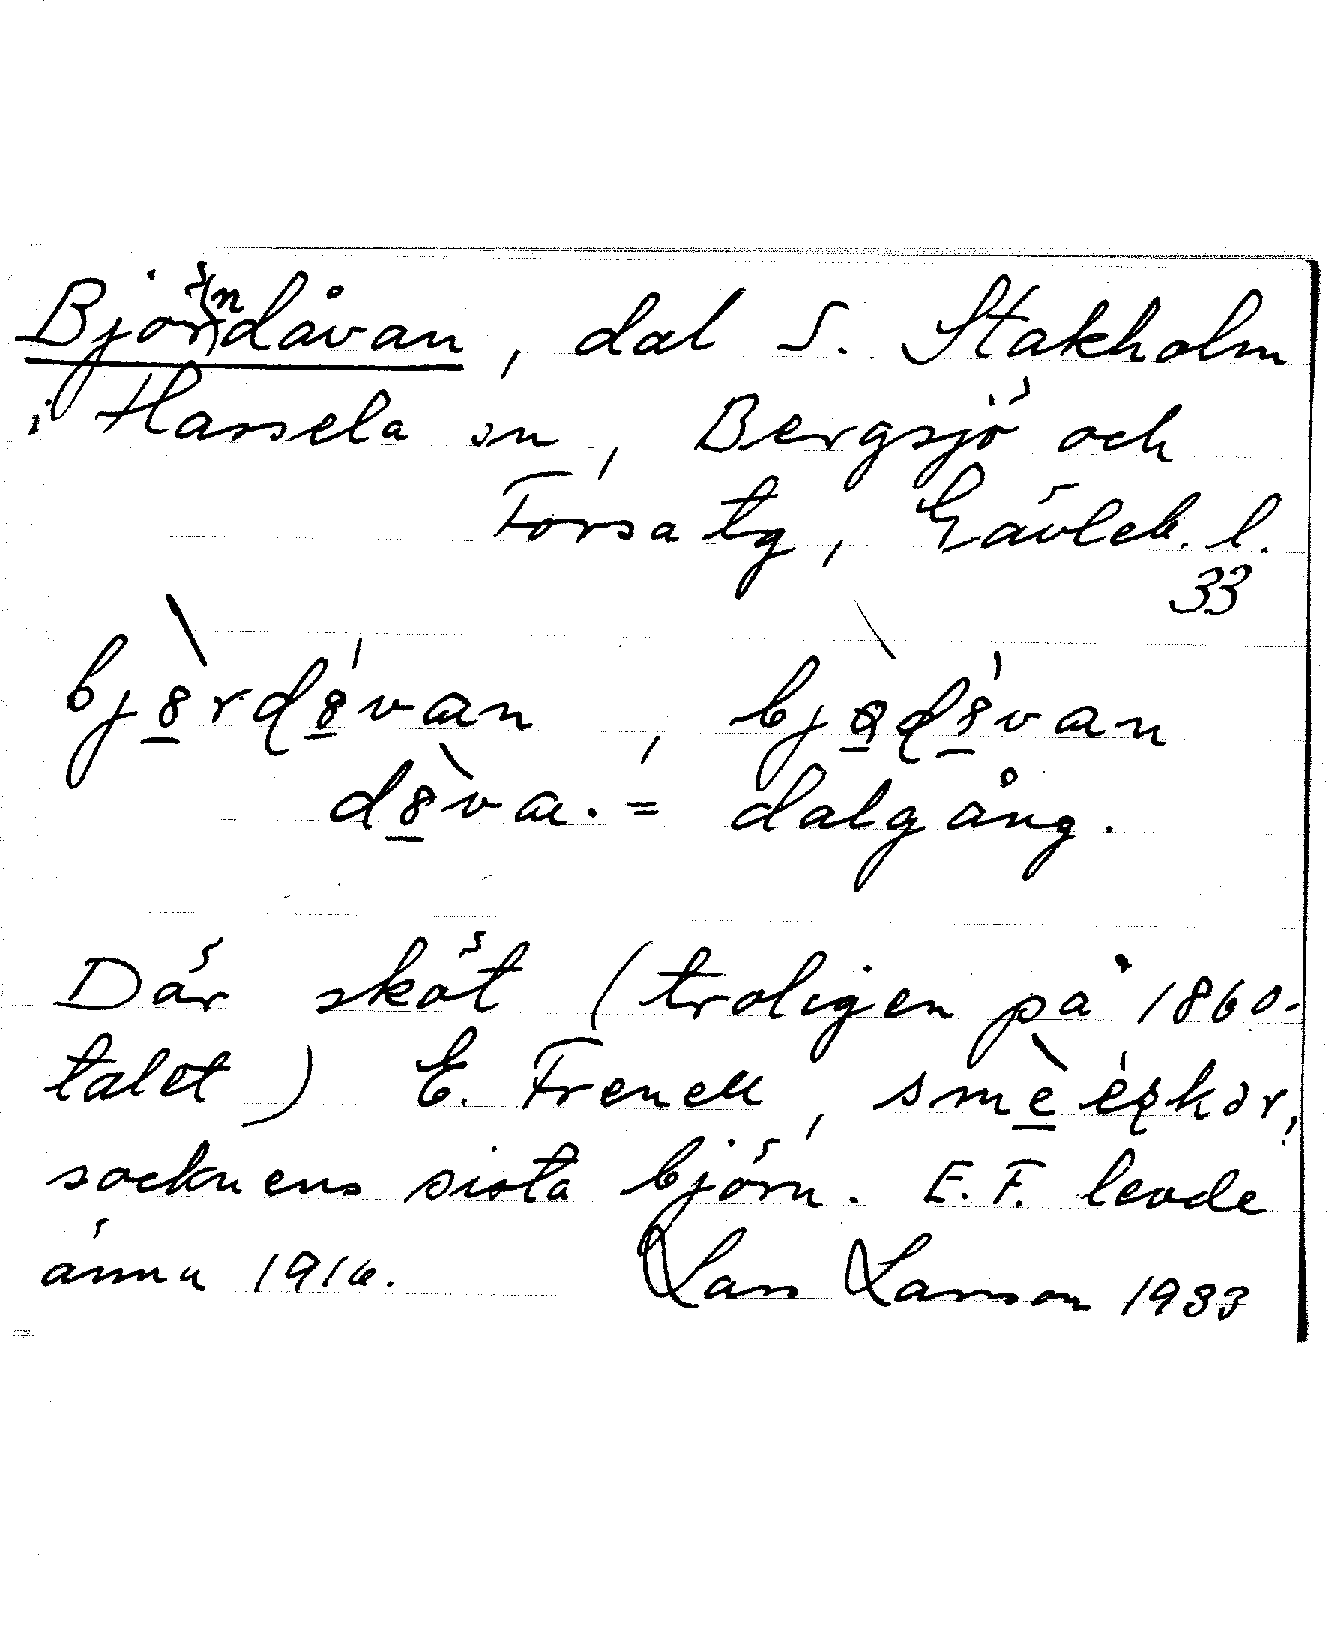 Björndåvan, dal S. Stakholm
i Hassela sn, Bergsjö och
Forsa tg, Gävleb. l.
33
= dalgång.
Där sköt (troligen på 1860-
talet) E. Frenell,
socknens sista björn. E.F. levde
ännu 1916. Lars Larsson 1933